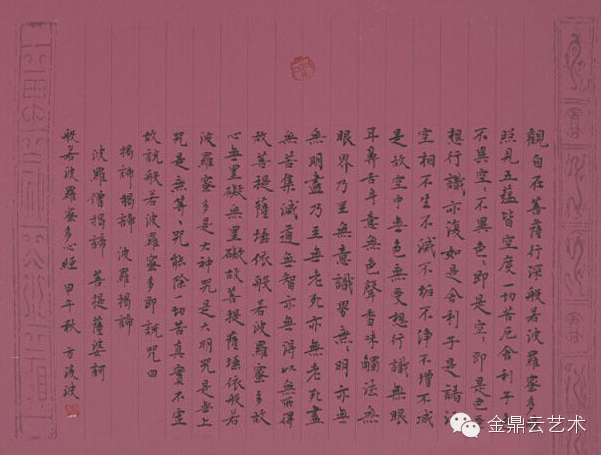 觀自在菩薩行深般若波羅蜜多
照見五蘊皆空度一切苦厄舍利子
不異空〻不異色〻即是空〻即是色
想行識亦復如是舍利子是諸法
空相不生不滅不垢不淨不增不減
是故空中無色無受想行識無眼
耳鼻舌身意無色聲香味觸法無
眼界乃至無意識界無明亦無
無明盡乃至無老死亦無老死盡
無苦集滅道無智亦無得以無所得
故菩提薩埵依般若波羅蜜多故
心無罣礙無罣礙故菩提薩埵依般若
波羅蜜多是大神咒是大明咒是無上
咒是無等咒能除一切苦真實不虛
故說般若波羅蜜多即說咒曰
揭諦揭諦 波羅揭諦
波羅僧揭諦 菩提薩婆訶
般若波羅蜜多心經 甲午秋 方波
金鼎云艺术